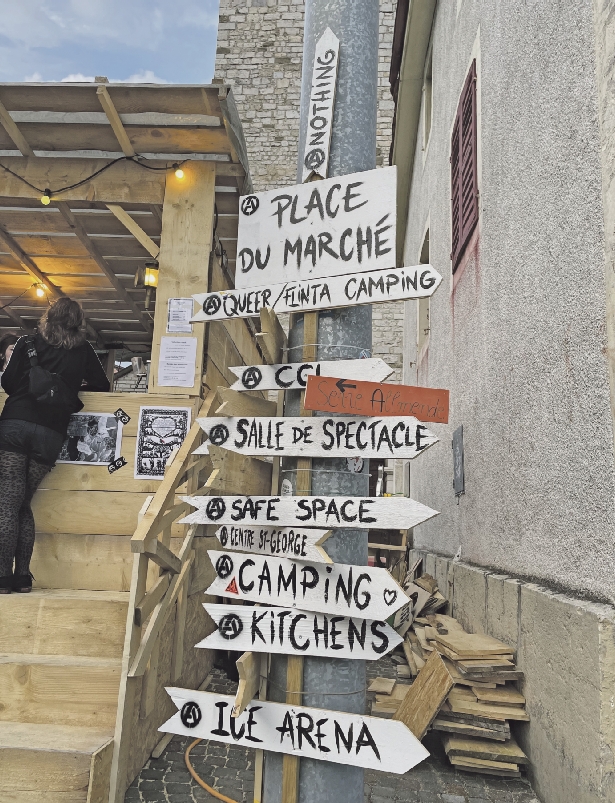 Ⓐ NOTHING
Ⓐ PLACE
DU MARCHÉ
Ⓐ QUEER/FLINTA CAMPING
Ⓐ CGL
Ⓐ SALLE DE SPECTACLE
Ⓐ SAFE SPACE
Ⓐ CENTRE ST-GEORGE
Ⓐ CAMPING ♡
Ⓐ KITCHENS
Ⓐ ICE ARENA